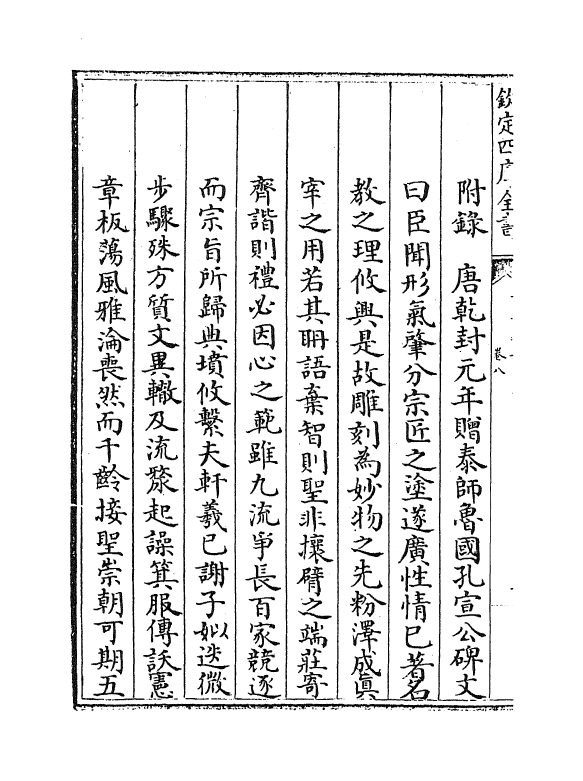 欽定四庫全書
卷八
附錄　唐乾封元年贈泰師魯國孔宣公碑文
曰臣聞形氣肇分宗匠之塗遂廣性情已著名
教之理攸興是故雕刻為妙物之先粉澤成真
宰之用若其眀語棄智則聖非攘臂之端莊寄
齊諧則禮必因心之範雖九流爭長百家競逐
而宗旨所歸典墳攸繫夫軒羲已謝子姒迭微
步驟殊方質文異轍及流漦起譟箕服傳訞憲
章板蕩風雅淪喪然而千齡接聖崇朝可期五